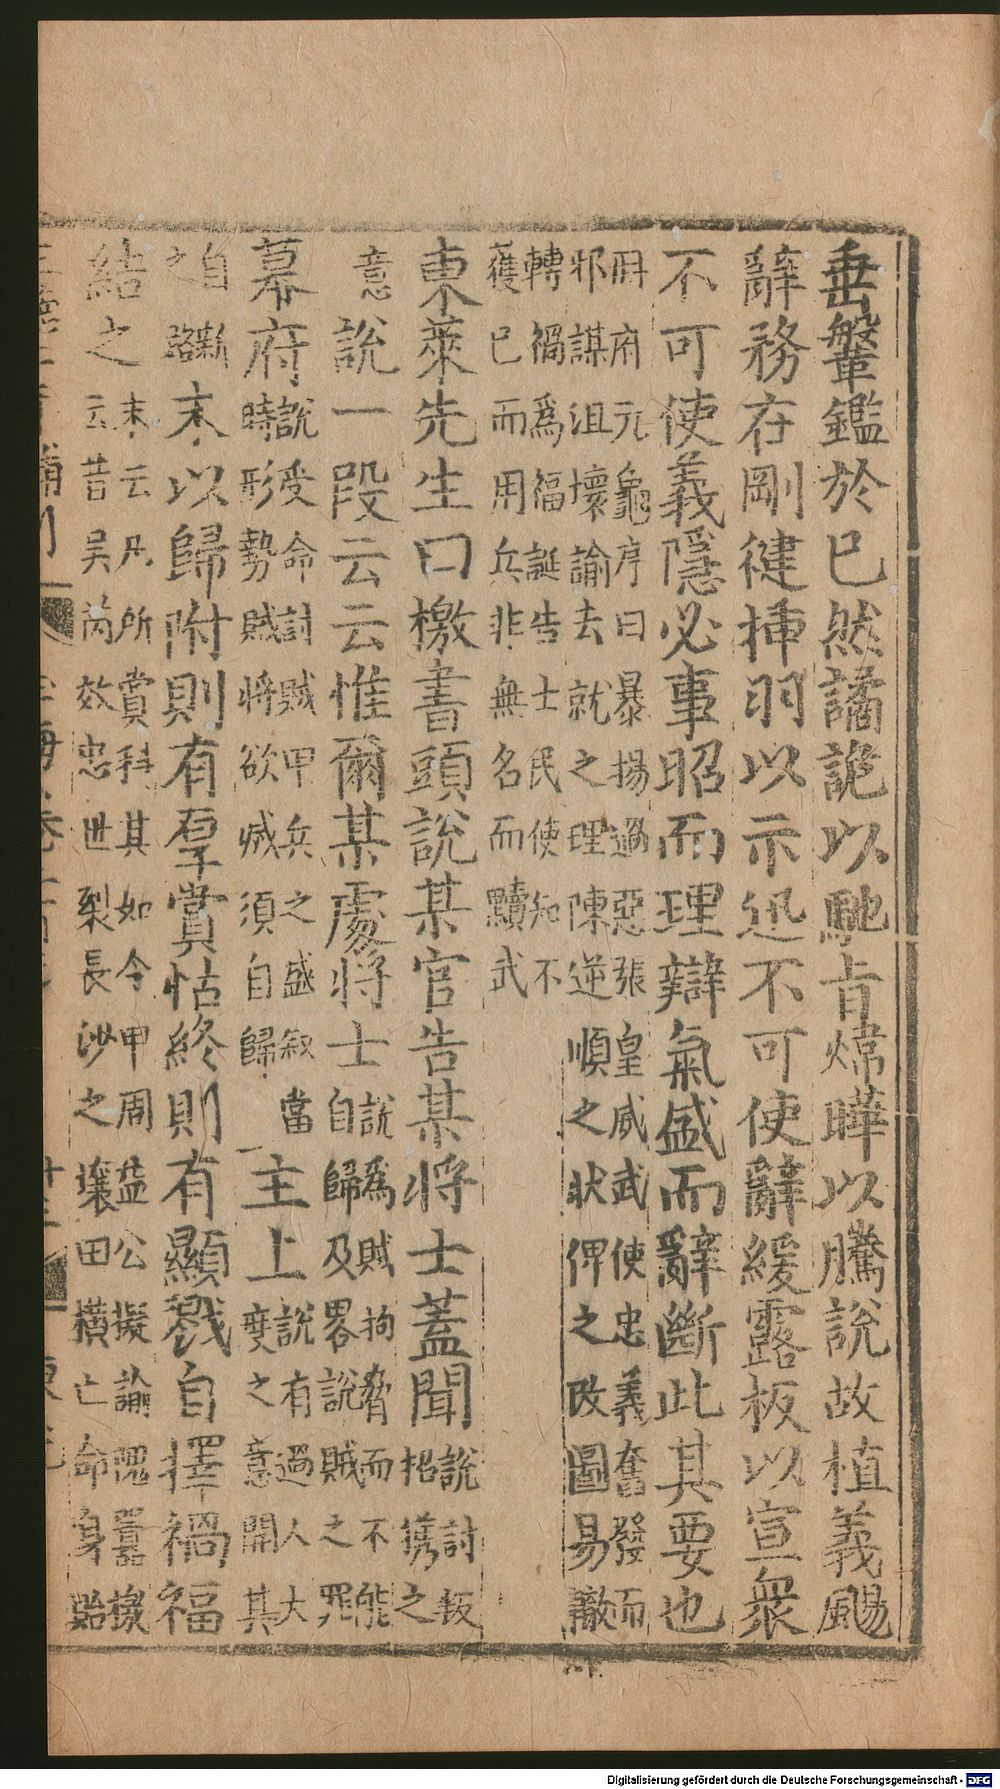 垂鞶鑑於已然譎詭以馳㫖煒曄以騰說故植義颺
辭務在剛健挿羽以示迅不可使辭緩露板以宣衆
不可使義隱必事昭而理辯氣盛而辭斷此其要也
冊府元龜序曰暴揚過惡張皇威武使忠義奮發而
邪謀沮壞諭去就之理陳逆順之狀俾之改圖易轍
轉禍爲福誕告士民使知不
獲已而用兵非無名而黷武
東萊先生曰檄書頭說某官告某將士蓋聞說討叛招携之
意說一段云云惟爾某處將士說爲賊拘脅而不能自歸及畧說賊之罪
幕府說受命討賊甲兵之盛叙當時形勢賊將欲滅須自歸主上說有過人大度之意開其
自新之路末以歸附則有羣賞怙終則有顯戮自擇禍福
結之末云凡所賞科其如今甲周益公擬諭隗囂檄云昔吳芮效忠世裂長沙之壤田橫亡命身貽
Digitalisierung gefördert durch die Deutsche Forschungsgemeinschaft - DFG